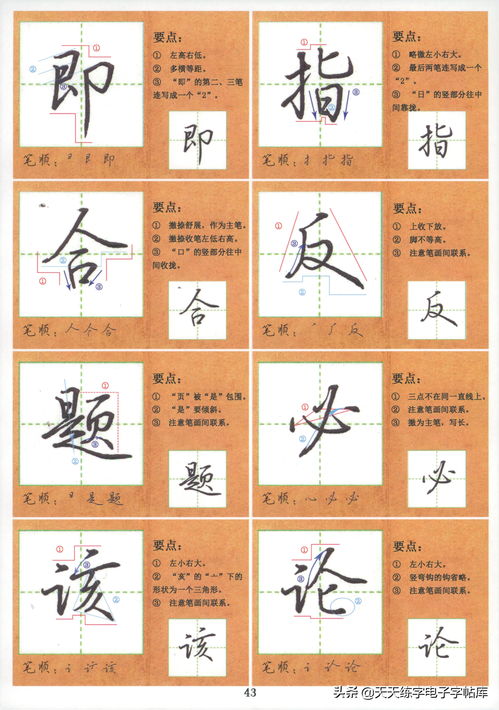 即
要点：
① 左高右低。
② 多横等距。
③ “即”的第二、三笔
连写成一个“2”。
即
笔顺：
即
指
要点：
① 略微左小右大。
② 最后两笔连写成一个
“2”。
③ “日”的竖部分往中
间靠拢。
指
笔顺：
指
合
要点：
① 撇捺舒展，作为主笔。
② 撇捺收笔左低右高。
③ “口”的竖部分往中
间收拢。
合
笔顺：人 合
反
要点：
① 上收下放。
② 脚不等高。
③ 注意笔画间联系。
反
笔顺：
反
题
要点：
① “页”被“是”包围。
② “是”要倾斜。
③ 注意笔画间联系。
题
笔顺：
是 题
必
要点：
① 三点不在同一直线上。
② 注意笔画间联系。
③ 撇为主笔，写长。
必
笔顺：心 必 必
该
要点：
① 左小右大。
② “亥”的“亠”下的
形状为一个三角形。
③ 注意笔画间联系。
该
笔顺：
该
论
要点：
① 左小右大。
② 竖弯钩的钩省略。
③ 注意笔画间联系。
论
笔顺：
论
43
头条@天天练字电子字帖库